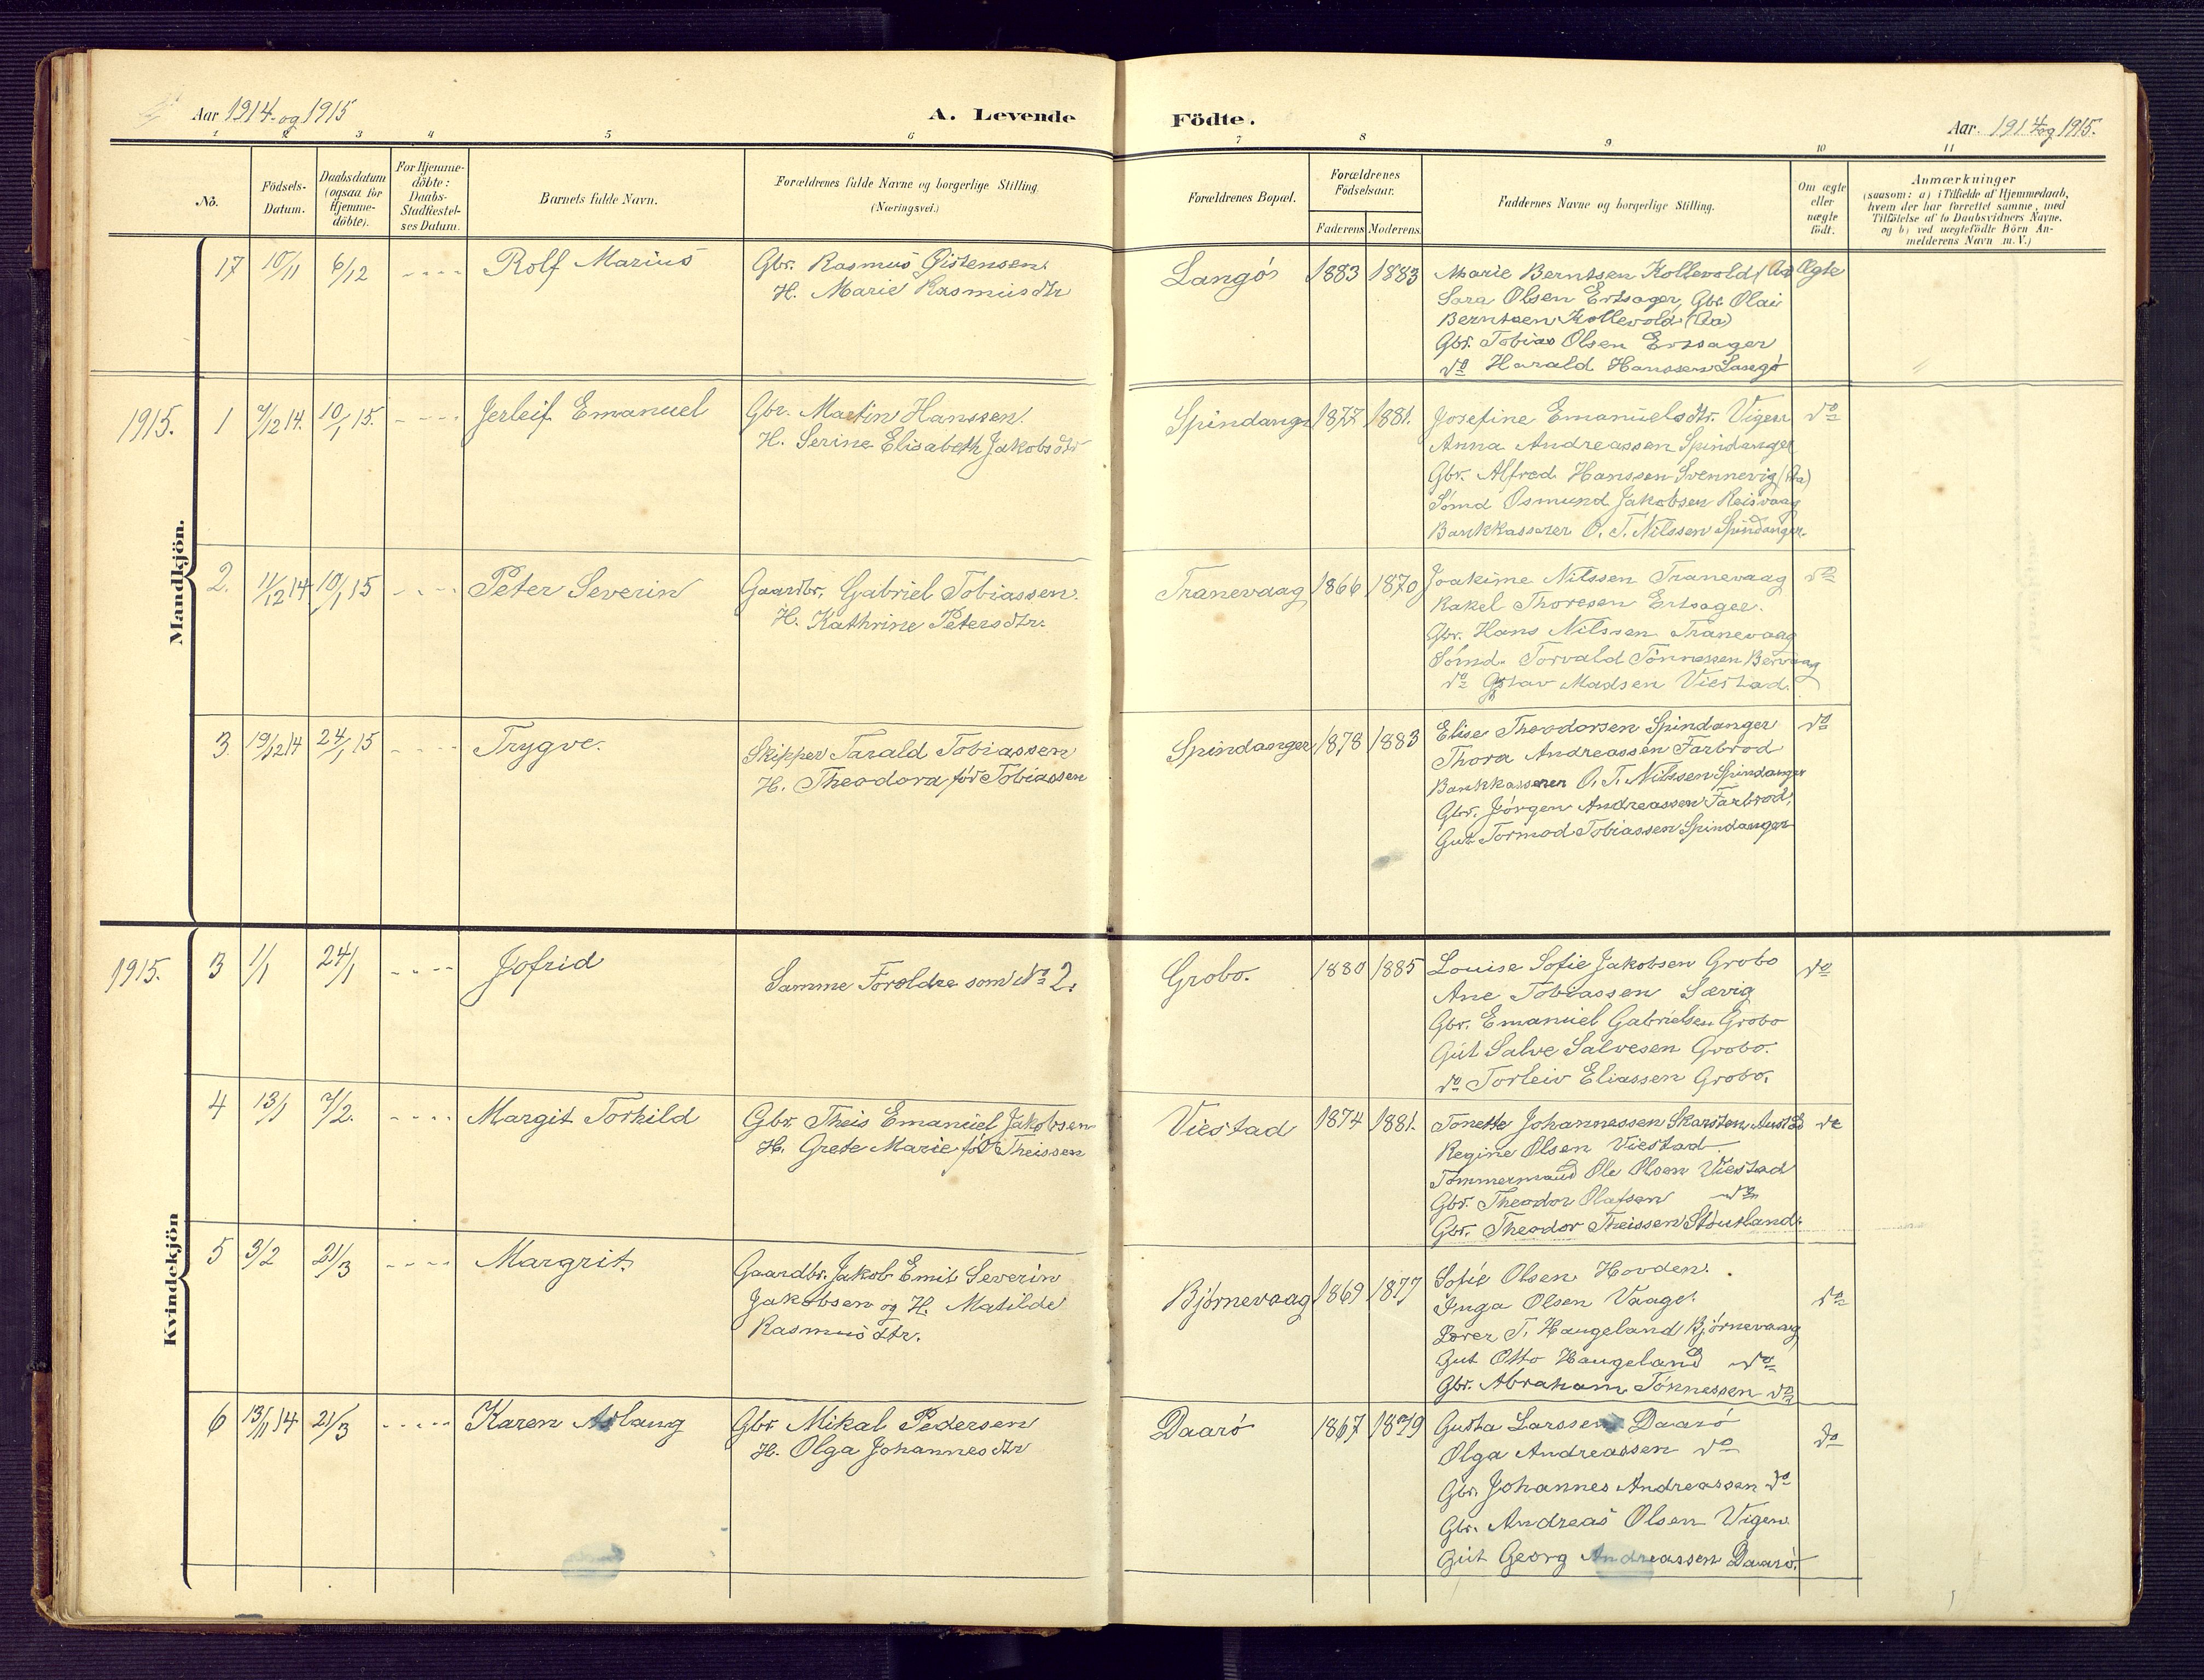 Aar 1914 og 1915
A. Levende
Födte.
Aar. 1914 og 1915.
1 2 3 4 5 6 7 8 9 10 11
No.
Födsels-
Datum.
Daabsdatum
(ogsaa for
Hjemme-
döbte).
For Hjemme-
döbte:
Daabs-
Stadfæstel-
ses Datum.
Barnets fulde Navn.
Forældrenes fulde Navne og borgerlige Stilling
(Næringsvei.)
Forældrenes Bopæl.
Forældrenes
Födselsaar.
Faderens Moderens
Faddernes Navne og borgerlige Stilling.
Om ægte
eller
uægte
födt.
Anmærkninger
(saasom: a) i Tilfælde af Hjemmedaab,
hvem der har forrettet samme, med
Tilföielse af to Daabsvidners Navne,
og b) ved uægtefödte Börn An-
melderens Navn m. V.)
Mandkjön.
17 10/11 6/12 ---- Rolf Marius
Gbr. Rasmus Øistensen
H. Marie Rasmusdtr
Langø 1883 1883
Marie Berntsen Kollevold (Aa)
Sara Olsen Ertsager, Gbr. Olai
Berntsen Kollevold (Aa)
Gbr. Tobias Olsen Ertsager
do Harald Hanssen Langø
Ægte
1915. 1 7/12 14. 10/1 15. ---- Jerleif Emanuel
Gbr. Martin Hanssen
H. Serine Elisabeth Jakobsdtr
Spindanger 1877 1881.
Josefine Emanuelsdtr. Vigen
Anna Andreassen Spindanger
Gbr. Alfred Hanssen Svennevig (Aa)
Sømd Osmund Jakobsen Reisvaag
Bankkasserer O. T. Nilssen Spindanger
do
2. 11/12 14 10/1 15 ---- Peter Severin
Gaardbr. Gabriel Tobiassen.
H. Kathrine Petersdtr.
Tranevaag 1866 1870
Joakime Nilssen Tranevaag
Rakel Thoresen Ertsager.
Gbr. Hans Nilssen Tranevaag
Sømd. Torvald Tønnessen Bervaag
do Gustav Madsen Viestad.
do
3. 19/12 14 24/1 15 ---- Trygve.
Skipper Tarald Tobiassen
H. Theodora fød Tobiassen
Spindanger 1878 1883
Elise Theodorsen Spindanger
Thora Andreassen Farbrod
Bankkasserer O. T. Nilssen Spindanger
Gbr. Jørgen Andreassen Farbrod,
Gut Tormod Tobiassen Spindanger
do
Kvindekjön
1915. 3 1/1 24/1 ---- Jofrid
Samme Foreldre som No 2.
Grobo. 1880 1885
Louise Sofie Jakobsen Grobo
Ane Tobiassen Sævig
Gbr. Emanuel Gabrielsen Grobo
Gut Salve Salvesen Grobo.
do Torleiv Eliassen Grobo.
do
4 13/1 7/2. ---- Margit Torhild
Gbr. Theis Emanuel Jakobsen
H. Grete Marie født Theissen
Viestad 1874 1881.
Tonette Johannessen Skarstem Austad
Regine Olsen Viestad
Tømmermand Ole Olsen Viestad
Gbr. Theodor Olafsen do
Gbr. Theodor Theissen Stoutland.
do
5 3/2 21/3 ---- Margrit.
Gaardbr. Jakob Emil Severin
Jakobsen og H. Matilde
Rasmusdtr.
Bjørnevaag 1869 1877
Sofie Olsen Hovden.
Inga Olsen Vaage.
Lærer T. Haugeland Bjørnevaag
Gut Otto Haugeland do
Gbr. Abraham Tønnessen do
do
6 13/11 14 21/3 ----- Karen Aslaug
Gbr Mikal Pedersen
H. Olga Johannesdtr
Daarø 1867 1879
Gusta Larssen Daarø
Olga Andreassen do
Gbr. Johannes Andreassen do
Gbr. Andreas Olsen Vigen
Gut Georg Andreassen Daarø.
do